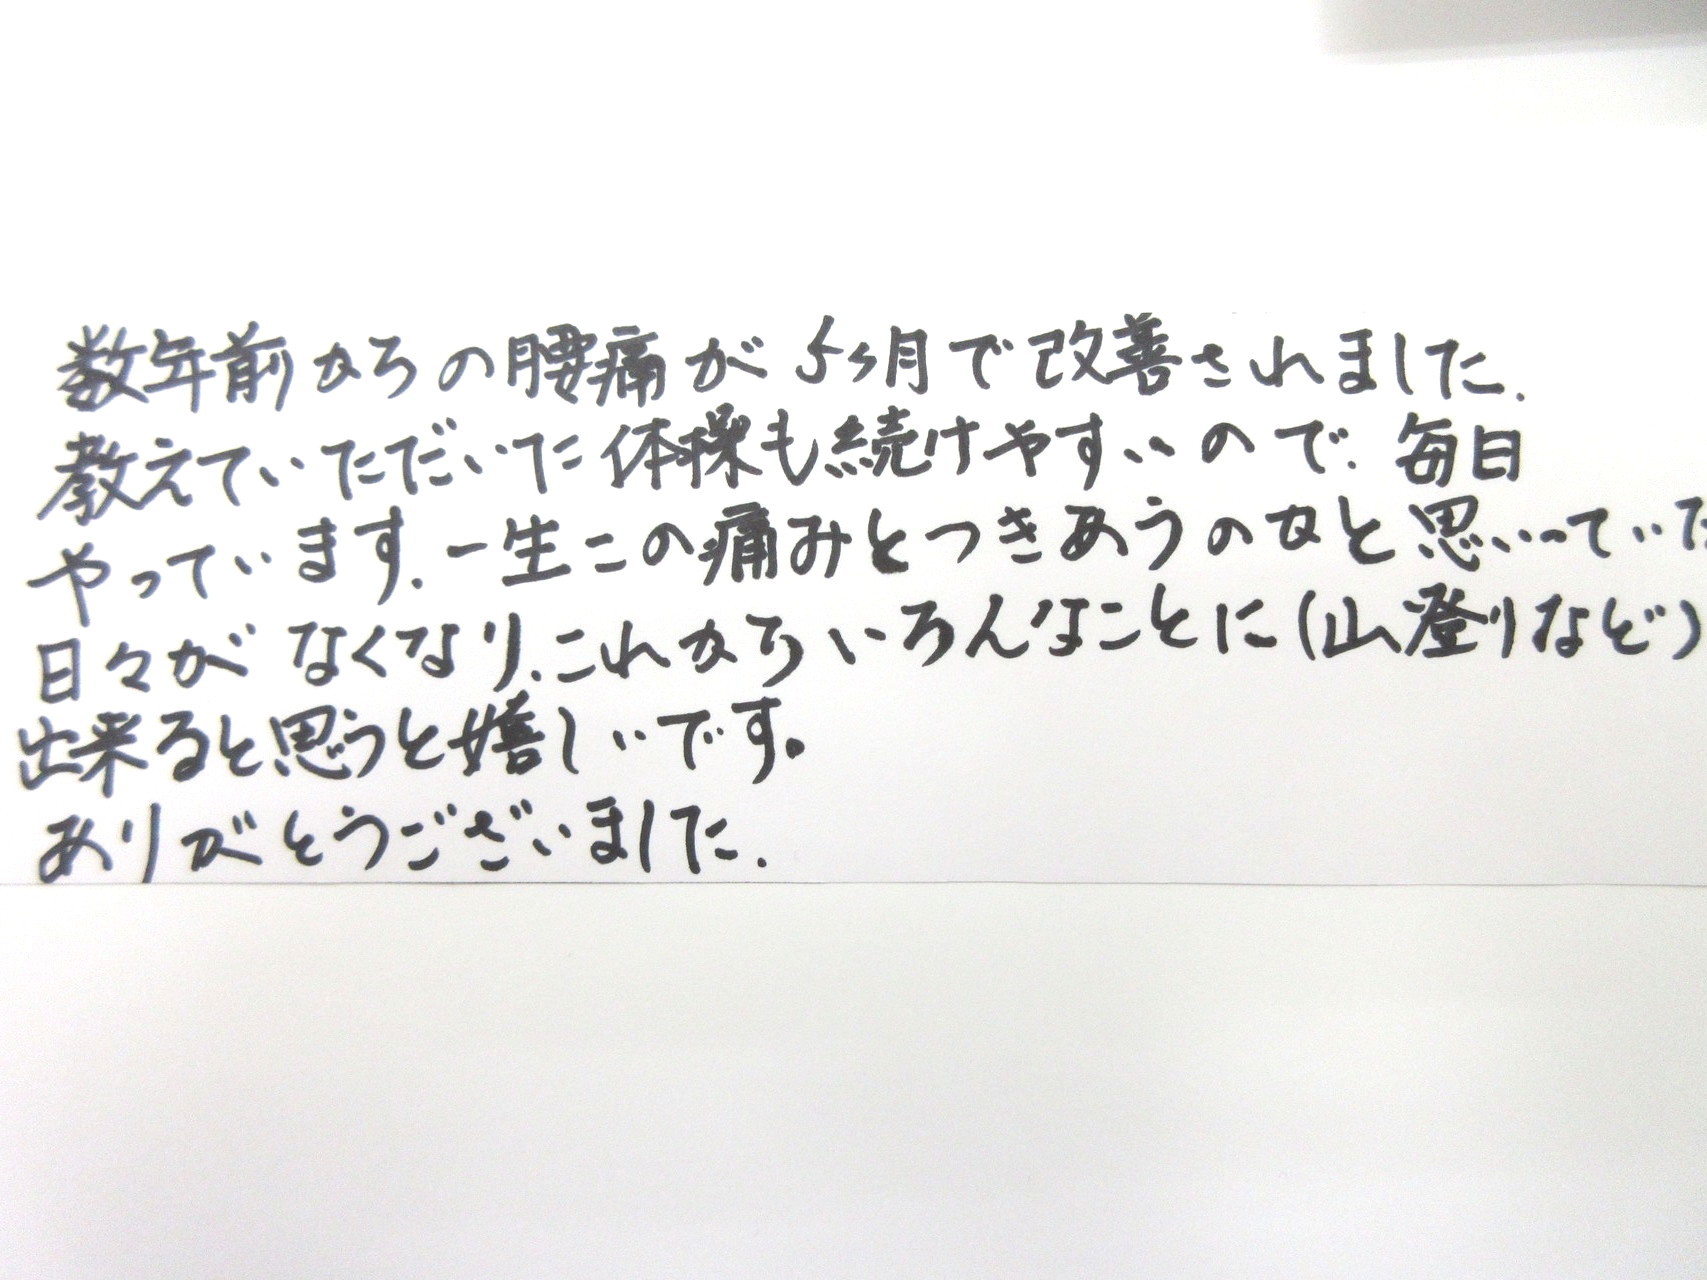 数年前からの腰痛が5ヶ月で改善されました.
教えていただいた体操も続けやすいので、毎日
やっています.一生この痛みとつきあうのかと思っていた
日々がなくなり、これからいろんなことに(山登りなど)
出来ると思うと嬉しいです。
ありがとうございました.